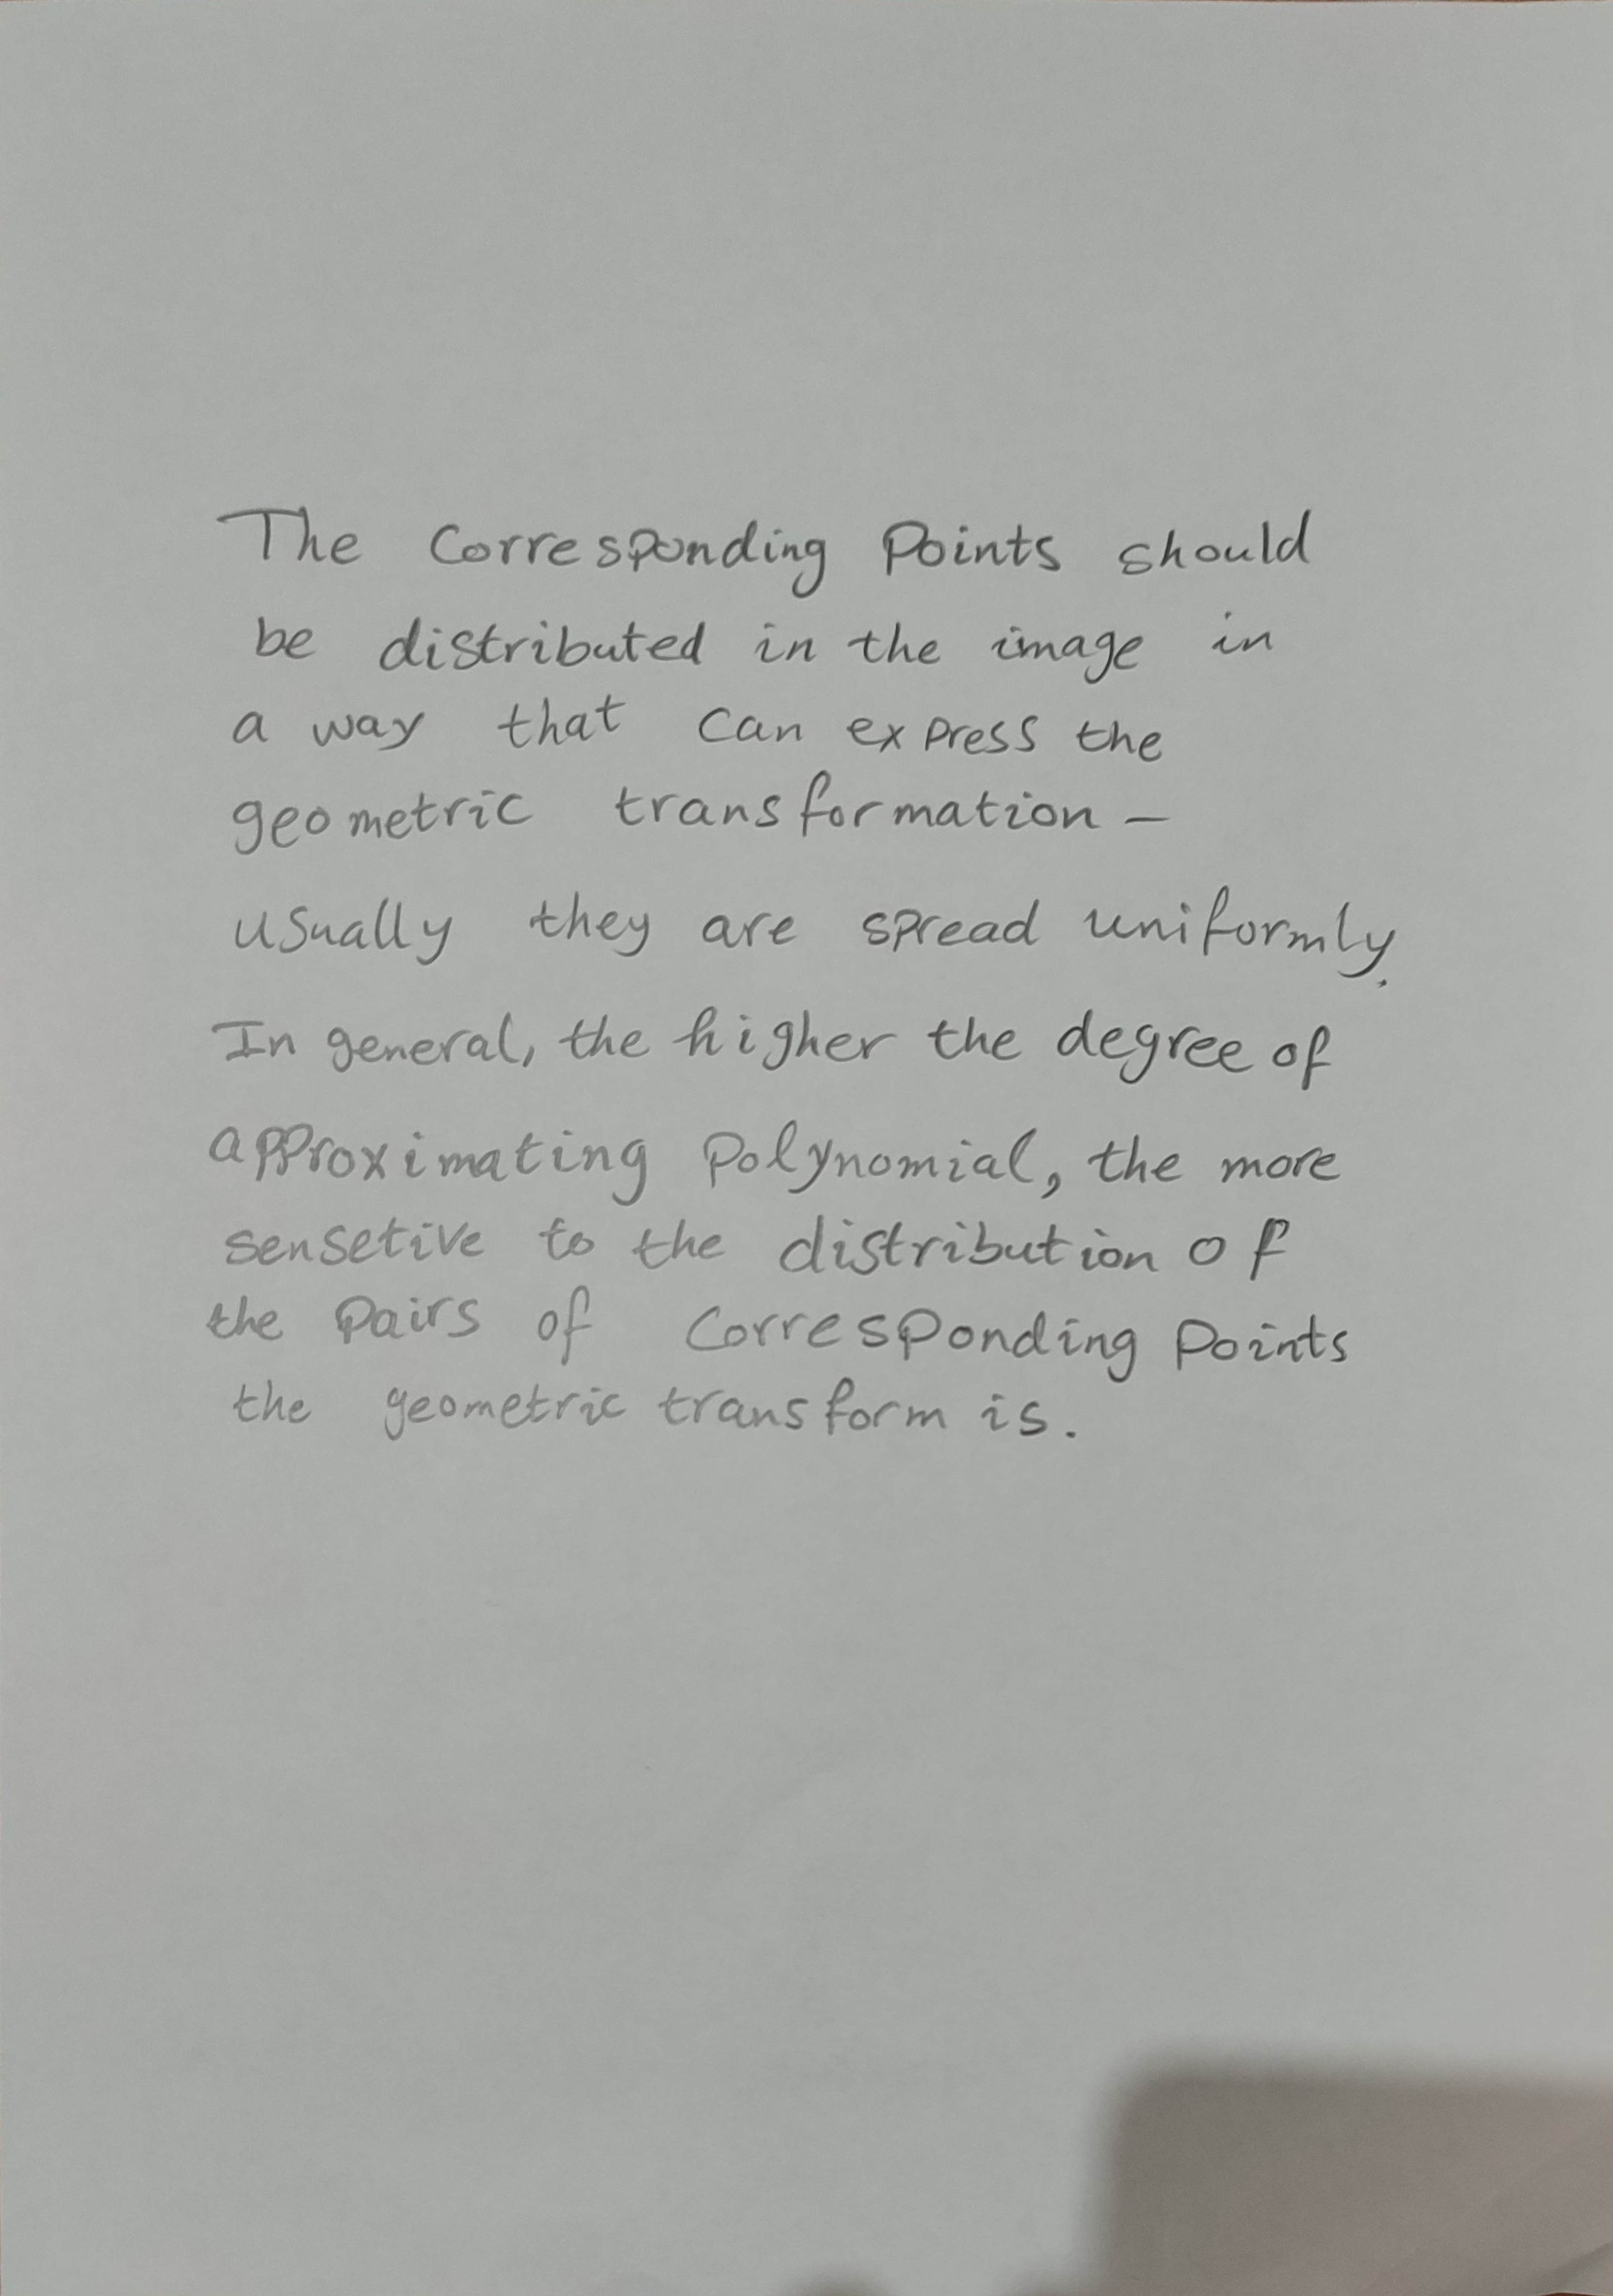 The Corresponding Points should
be distributed in the image in
a way that can express the
geometric transformation –
usually they are spread uniformly.
In general, the higher the degree of
approximating polynomial, the more
sensetive to the distribution of
the pairs of corresponding points
the geometric transform is.